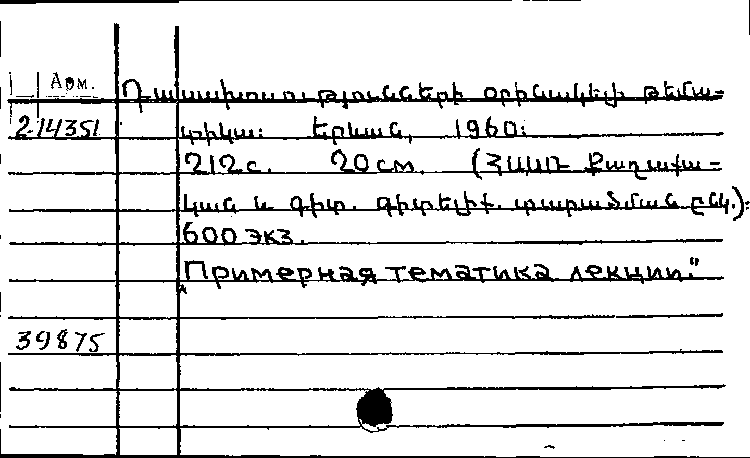 Арм. Դասախոսությունների օրինակելի թեմա-
214351 տիկա։ Երևան, 1960։
212с. 20см. (ՀՍՍՌ Քաղաքա-
կան և գիտ. գիտելիք. տարածման ընկ.)։
600 экз.
„Примерная тематика лекции."
39875